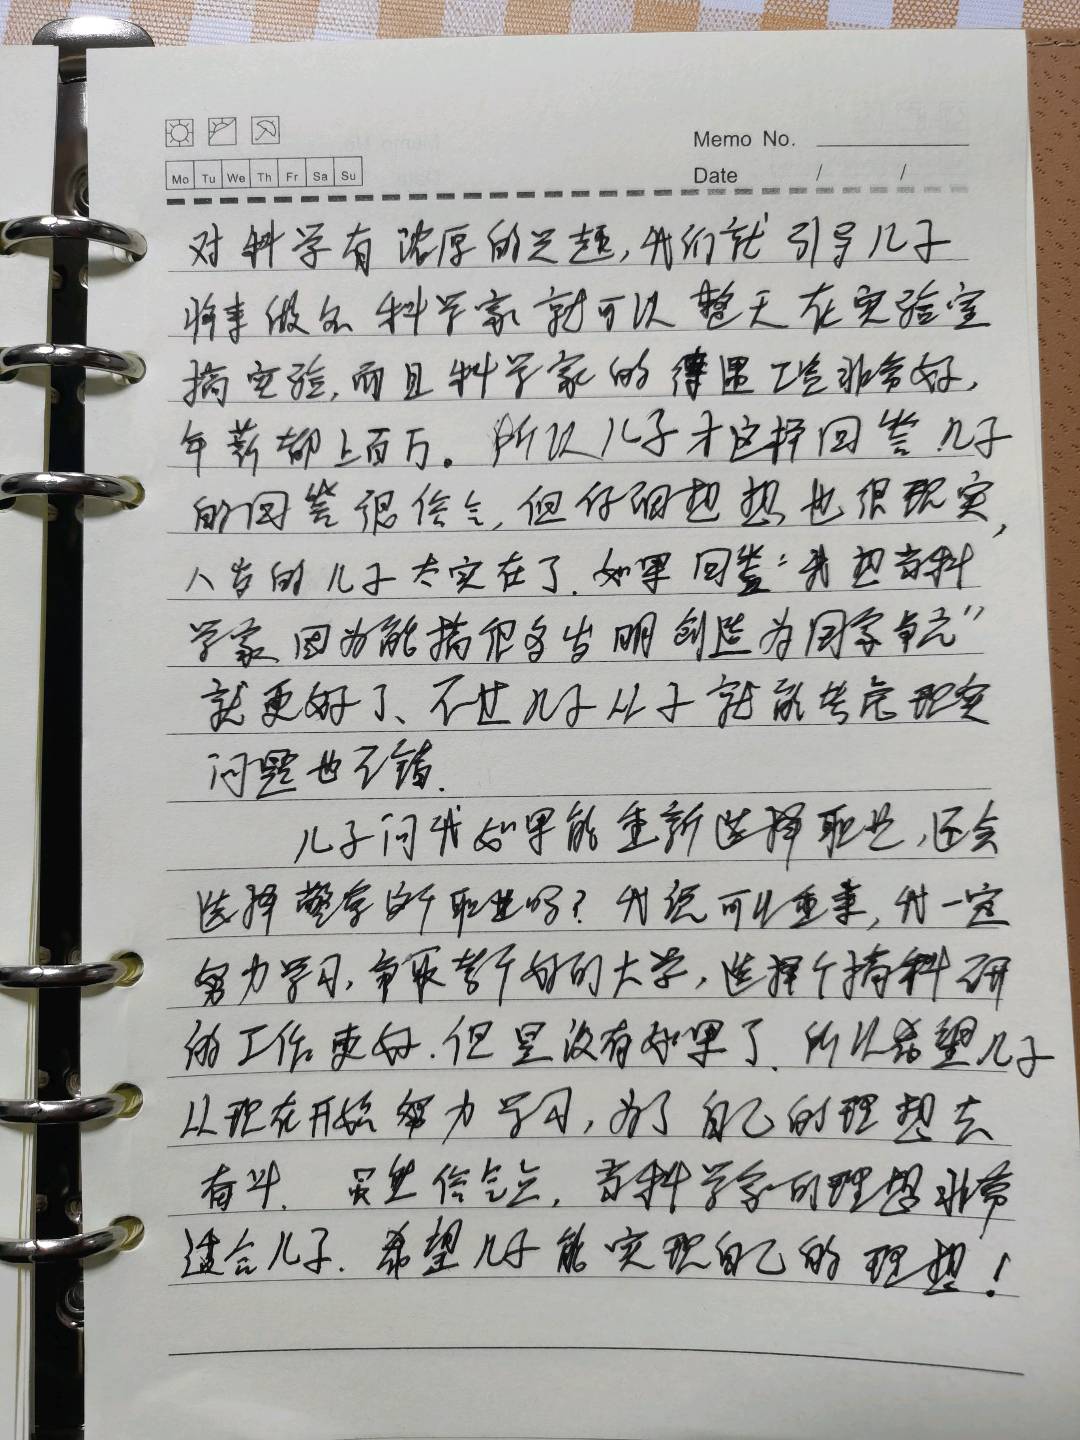 Memo No.
Mo Tu We Th Fr Sa Su
Date / /
对科学有浓厚的兴趣,我们就引导儿子
将来做个科学家就可以整天在实验室
搞实验,而且科学家的待遇工资非常好,
年薪都上百万。所以儿子才这样回答.儿子
的回答很俗气,但仔细想想也很现实,
八岁的儿子太实在了.如果回答“我想当科
学家因为能搞很多发明创造为国家争光”
就更好了、不过儿子从子就能考虑现实
问题也不错.
儿子问我如果能重新选择职业,还会
选择警察这个职业吗?我说可以重来,我一定
努力学习,争取考个好的大学,选择个搞科研
的工作更好.但是没有如果了.所以希望儿子
从现在开始努力学习,为了自己的理想去
奋斗.虽然俗气点,当科学家的理想非常
适合儿子.希望儿子能实现自己的理想!